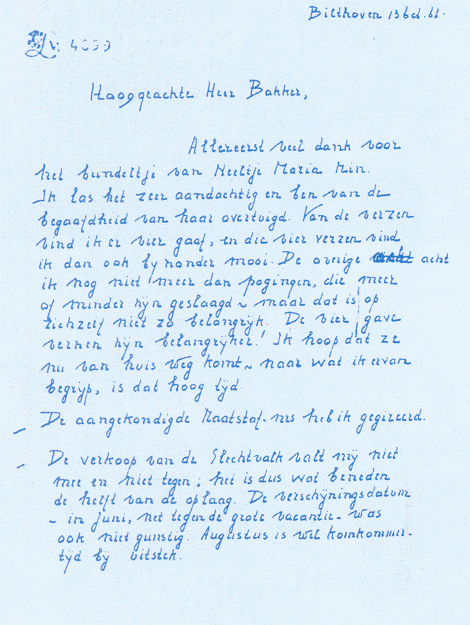 Bilthoven 13 oct. 66.
4099
Hooggeachte Heer Bakker,
Allereerst veel dank voor
het bundeltje van Neeltje Maria Min.
Ik las het zeer aandachtig en ben van de
begaafdheid van haar overtuigd. Van de verzen
vind ik er vier gaaf, en die vier verzen vind
ik dan ook byzonder mooi. De overige acht
ik nog niet meer dan pogingen, die meer
of minder zyn geslaagd ~ maar dat is op
zichzelf niet zo belangrijk. De vier gave
verzen zyn belangrijker! Ik hoop dat ze
nu van huis weg komt ~ naar wat ik ervan
begryp, is dat hoog tyd.
– De aangekondigde Maatstaf-nrs heb ik gegireerd.
– De verkoop van de Slechtvalk valt my niet
mee en niet tegen; het is dus wat beneden
de helft van de oplaag. De verschyningsdatum
– in Juni, net tegen de grote vacantie – was
ook niet gunstig. Augustus is wel komkommer-
tyd by uitstek.